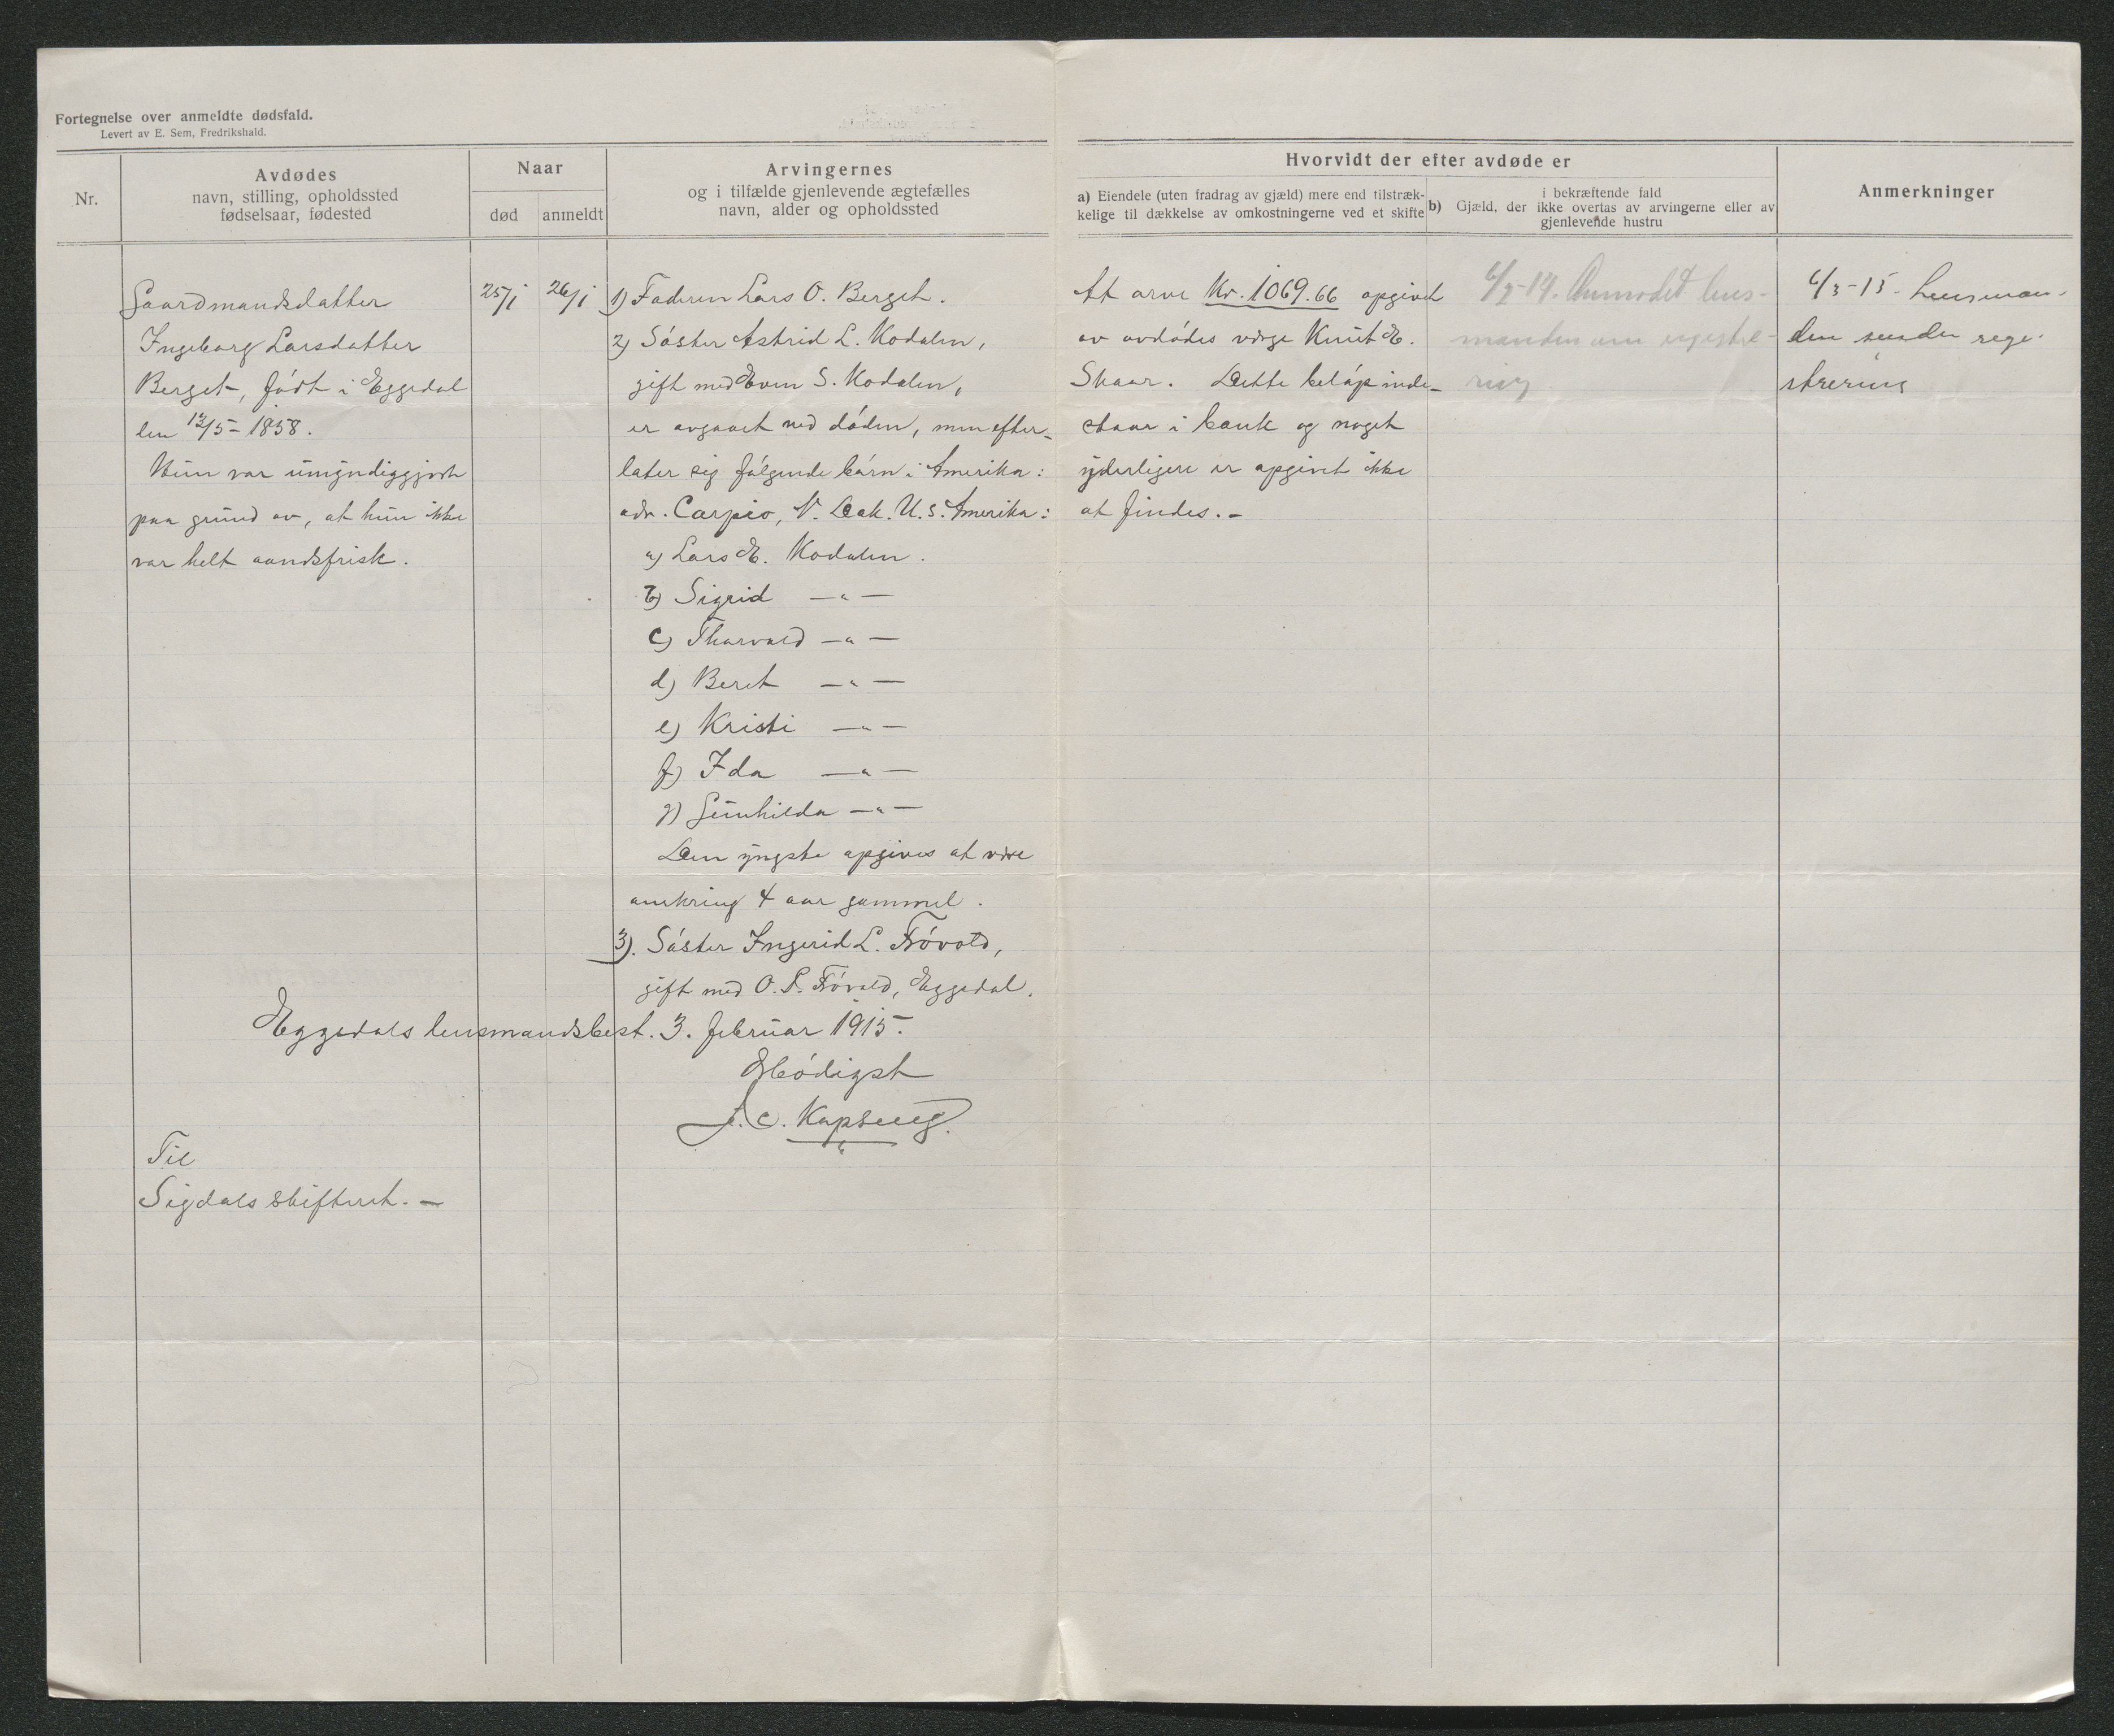 Fortegnelse over anmeldte dødsfald.
Levert av E. Sem, Fredrikshald.
Nr.
Avdødes
navn, stilling, opholdssted
fødselsaar, fødested
Naar
død
anmeldt
Arvingernes
og i tilfælde gjenlevende ægtefælles
navn, alder og opholdssted
Hvorvidt der efter avdøde er
a) Eiendele (uten fradrag av gjæld) mere end tilstræk-
kelige til dækkelse av omkostningerne ved et skifte
i bekræftende fald
b) Gjæld, der ikke overtas av arvingerne eller av
gjenlevende hustru
Anmerkninger
Gaardmandsdatter
Ingeborg Larsdatter
Berget, født i Eggedal
den 12/5-1858.
Hun var umyndiggjort
paa grund av, at hun ikke
var helt aandsfrisk.
25/1
26/1
1) Faderen Lars O. Berget.
2) Søster Astrid L. Kodalen,
gift med Even S. Kodalen,
er avgaaet ved døden, men efter-
later sig følgende børn i Amerika:
adr. Carpio, N. Dak. U.S. Amerika:
a) Lars E. Kodalen.
b) Sigrid —"—
c) Thorvald —"—
d) Beret —"—
e) Kristi —"—
f) Ida —"—
g) Gunhilda —"—
Den yngste opgives at være
omkring 4 aar gammel.
3). Søster Ingerid L. Frøvold,
gift med O. P. Frøvold, Eggedal.
Eggedals lensmandsbest. 3. februar 1915.
Ærbødigst
J. C. Kopseng.
Til
Sigdals skifteret. —
At arve Kr. 1069.66 opgivet
av avdødes verge Knut E.
Skaar. Dette beløp inde-
staar i bank og noget
yderligere er opgivet ikke
at findes. —
6/3-14. Anmodet lens-
manden om registre-
ring
6/3-15. Lensman-
den sender regi-
strering